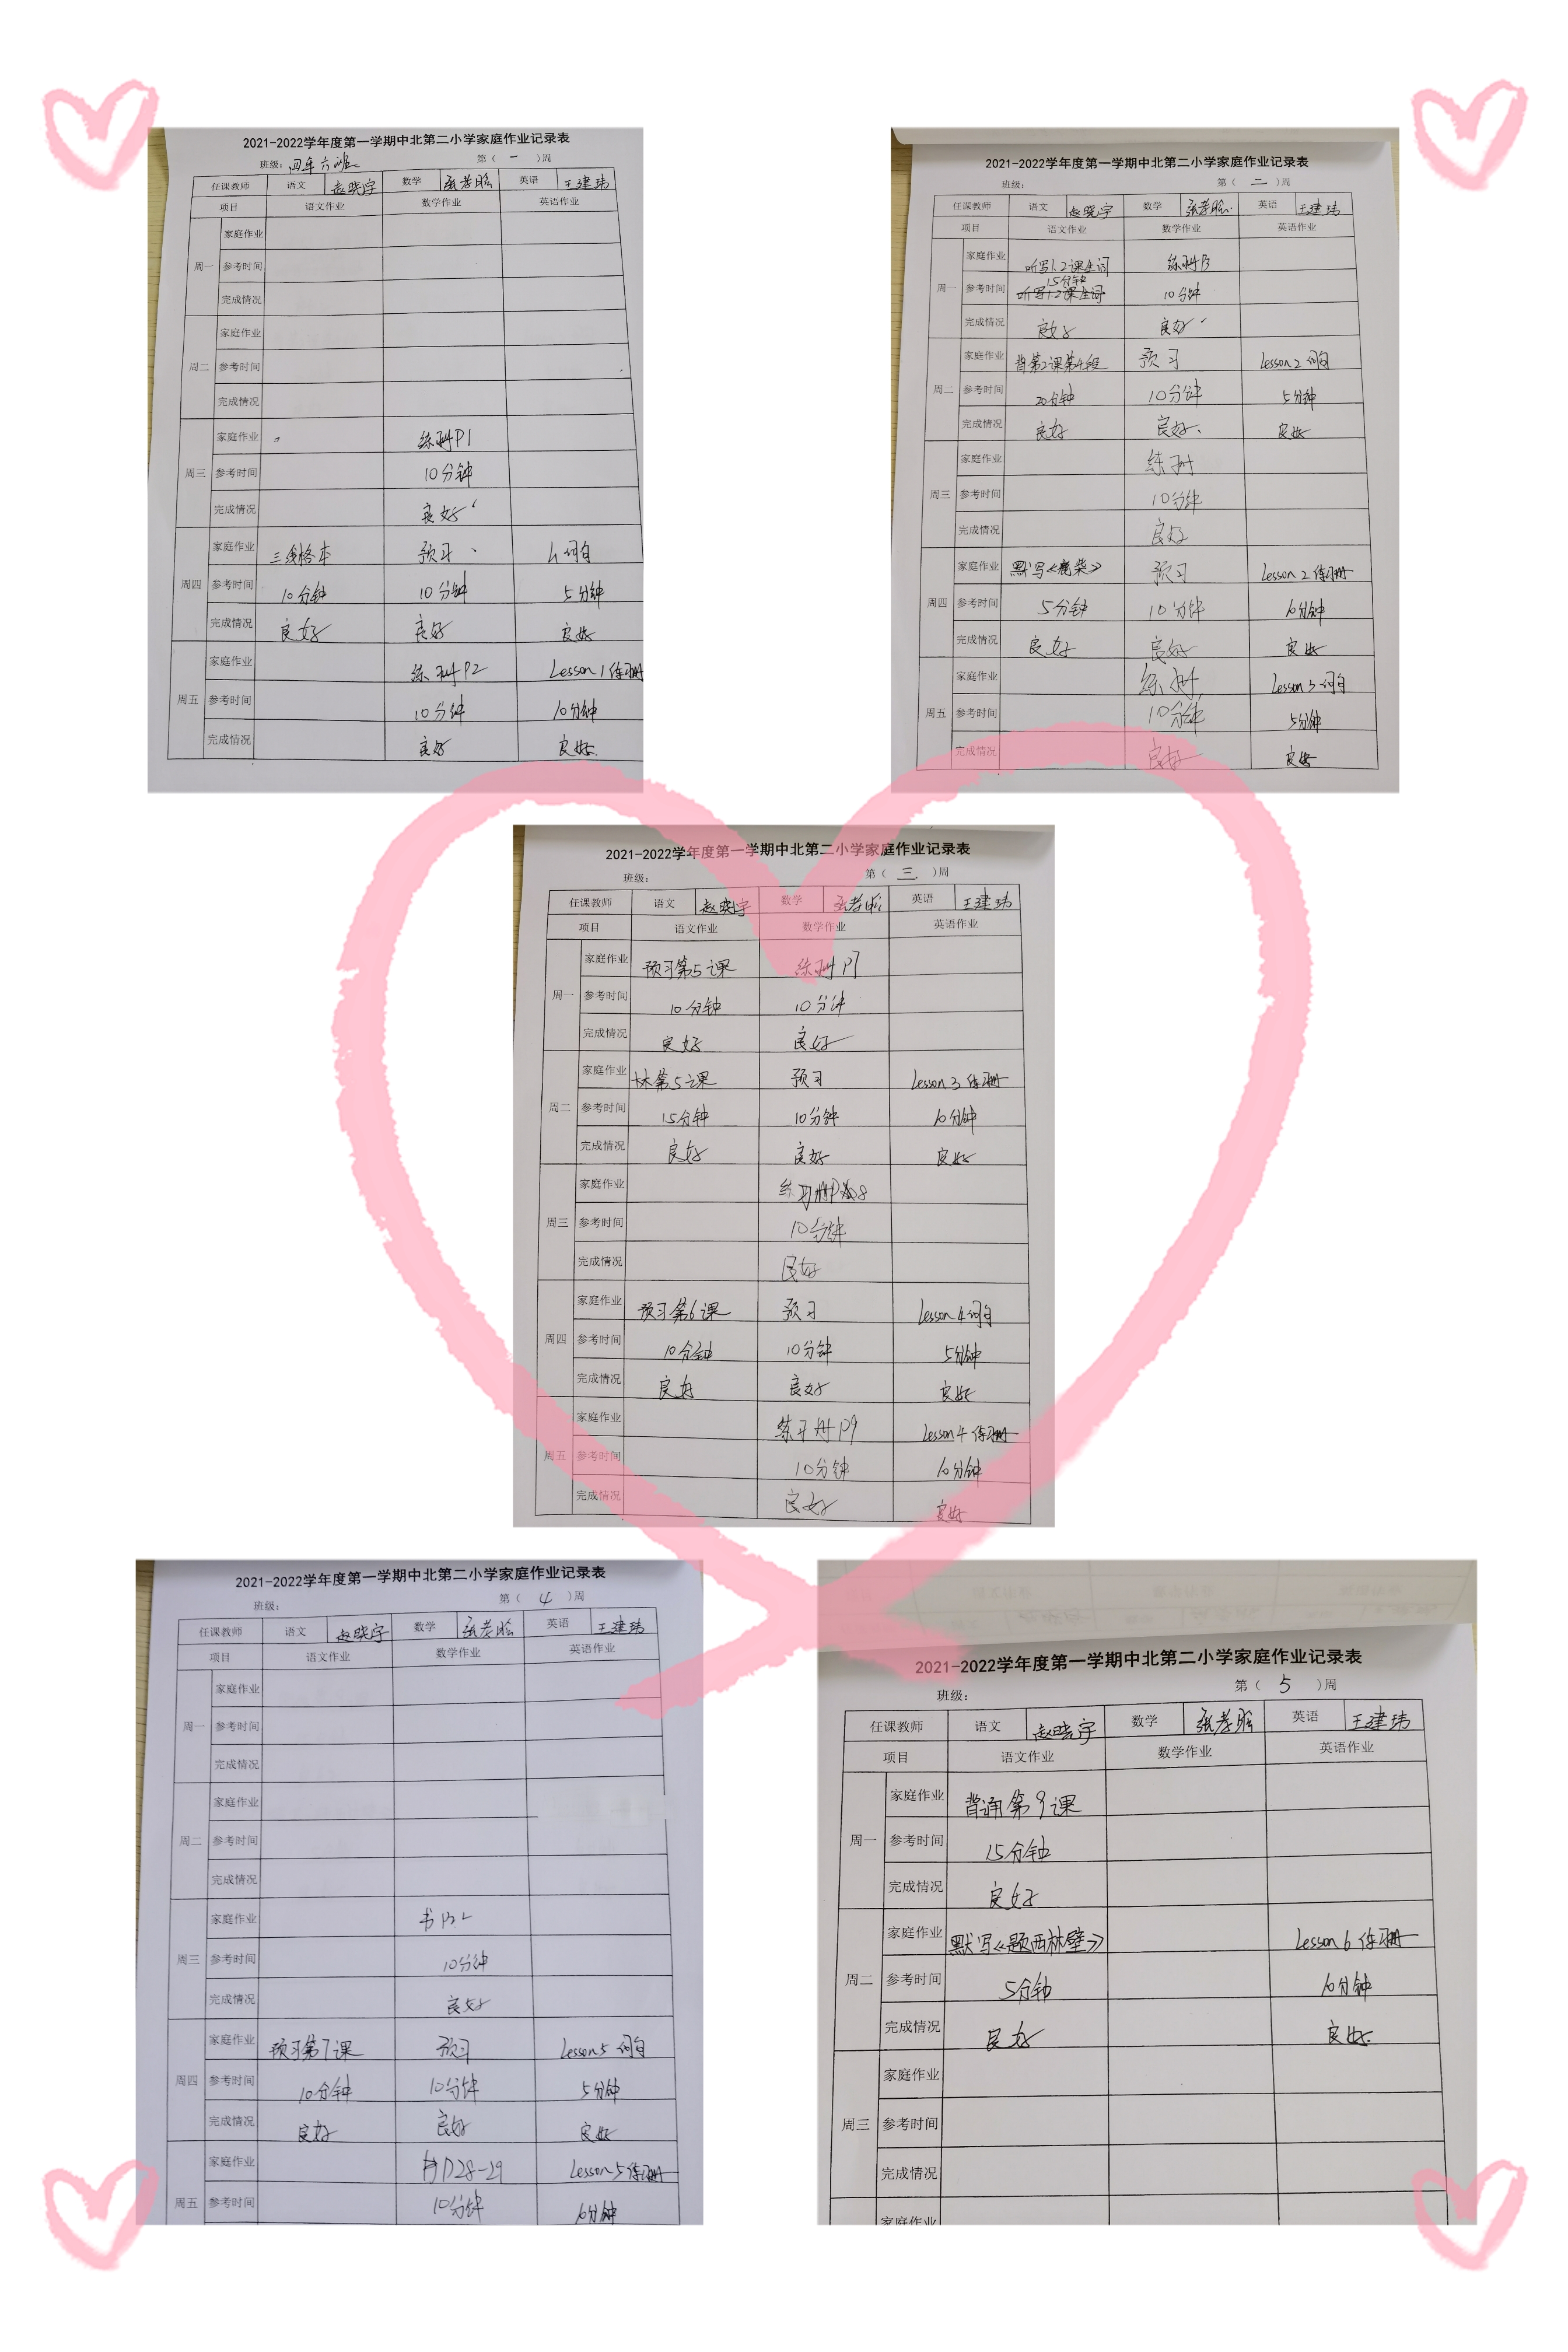 2021-2022学年度第一学期中北第二小学家庭作业记录表
班级：四年六班 第（ 一 ）周
任课教师 语文 赵晓宇 数学 英语 王建玮
项目 语文作业 数学作业 英语作业
周一 家庭作业
参考时间
完成情况
周二 家庭作业
参考时间
完成情况
周三 家庭作业 练册P1
参考时间 10分钟
完成情况 良好
周四 家庭作业 三线格本 预习 词句
参考时间 10分钟 10分钟 5分钟
完成情况 良好 良好 良好
周五 家庭作业 练册P2 Lesson 1 练习册
参考时间 10分钟 10分钟
完成情况 良好 良好
2021-2022学年度第一学期中北第二小学家庭作业记录表
班级： 第（ 二 ）周
任课教师 语文 赵晓宇 数学 英语 王建玮
项目 语文作业 数学作业 英语作业
周一 家庭作业 听写1.2课生词 练册P3
参考时间 15分钟 10分钟
完成情况 良好 良好
周二 家庭作业 背第2课第4段 预习 Lesson 2 词句
参考时间 20分钟 10分钟 5分钟
完成情况 良好 良好 良好
周三 家庭作业 练册
参考时间 10分钟
完成情况 良好
周四 家庭作业 默写《鹿柴》 预习 Lesson 2 练习册
参考时间 5分钟 10分钟 10分钟
完成情况 良好 良好 良好
周五 家庭作业 练册 Lesson 3 词句
参考时间 10分钟 5分钟
完成情况 良好 良好
2021-2022学年度第一学期中北第二小学家庭作业记录表
班级： 第（ 三 ）周
任课教师 语文 赵晓宇 数学 英语 王建玮
项目 语文作业 数学作业 英语作业
周一 家庭作业 预习第5课 练册P7
参考时间 10分钟 10分钟
完成情况 良好 良好
周二 家庭作业 第5课 预习 Lesson 3 练习册
参考时间 15分钟 10分钟 10分钟
完成情况 良好 良好 良好
周三 家庭作业 练习册P8
参考时间 10分钟
完成情况 良好
周四 家庭作业 预习第6课 预习 Lesson 4 词句
参考时间 10分钟 10分钟 5分钟
完成情况 良好 良好 良好
周五 家庭作业 练习册P9 Lesson 4 练习册
参考时间 10分钟 10分钟
完成情况 良好 良好
2021-2022学年度第一学期中北第二小学家庭作业记录表
班级： 第（ 4 ）周
任课教师 语文 赵晓宇 数学 英语 王建玮
项目 语文作业 数学作业 英语作业
周一 家庭作业
参考时间
完成情况
周二 家庭作业
参考时间
完成情况
周三 家庭作业
参考时间 10分钟
完成情况 良好
周四 家庭作业 预习第7课 预习 Lesson 5 词句
参考时间 10分钟 10分钟 5分钟
完成情况 良好 良好 良好
周五 家庭作业 P28-29 Lesson 5 练习册
参考时间 10分钟 10分钟
2021-2022学年度第一学期中北第二小学家庭作业记录表
班级： 第（ 5 ）周
任课教师 语文 赵晓宇 数学 英语 王建玮
项目 语文作业 数学作业 英语作业
周一 家庭作业 背诵第9课
参考时间 15分钟
完成情况 良好
周二 家庭作业 默写《题西林壁》 Lesson 6 练习册
参考时间 5分钟 10分钟
完成情况 良好 良好
周三 家庭作业
参考时间
完成情况
家庭作业